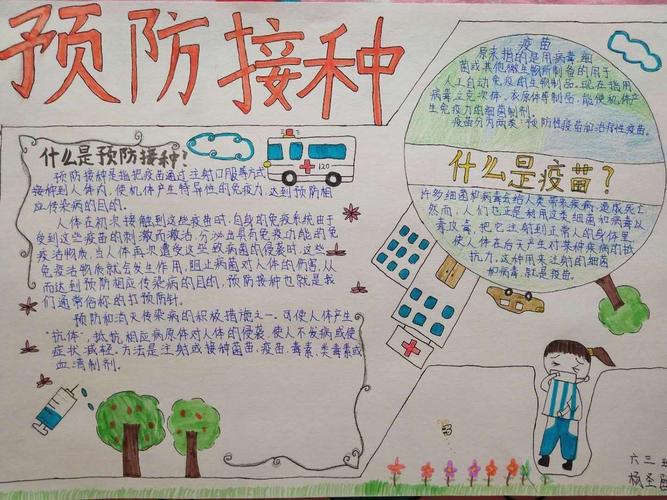 预防接种
什么是预防接种?
预防接种是指把疫苗通过注射口服等方式
接种到人体内,使机体产生特异性的免疫力,达到预防相
应传染病的目的.
人体在初次接触到这些疫苗时,自身的免疫系统由于
受到这些疫苗的刺激而激活,分泌出具有免疫功能的免
疫活物质,当人体再次遭受这些致病菌的侵袭时,这些
免疫活物质就会发生作用,阻止病菌对人体的伤害,从
而达到预防相应传染病的目的,预防接种也就是我
们通常俗称的打预防针.
预防和消灭传染病的积极措施之一.可使人体产生
"抗体",抵抗相应病原体对人体的侵袭,使人不发病或使
症状减轻.方法是注射或接种菌苗、疫苗、毒素、类毒素或
血清制剂.
120
疫苗
原来指的是用病毒细
菌或其他微生物所制备的用于
人工自动免疫的生物制品.现在指用
病毒立克次体、衣原体等制品,能使机体产
生免疫力的细菌制剂.
疫苗分为两类:预防性疫苗和治疗性疫苗.
什么是疫苗?
许多细菌和病毒会给人类带来疾病,造成死亡
然而,人们也正是利用这类细菌和病毒以
毒攻毒,把它注射到正常人的身体里,
使人体在后天产生对某种疾病的抵
抗力,这种用来注射的细菌
和病毒,就是疫苗.
六三
杨圣